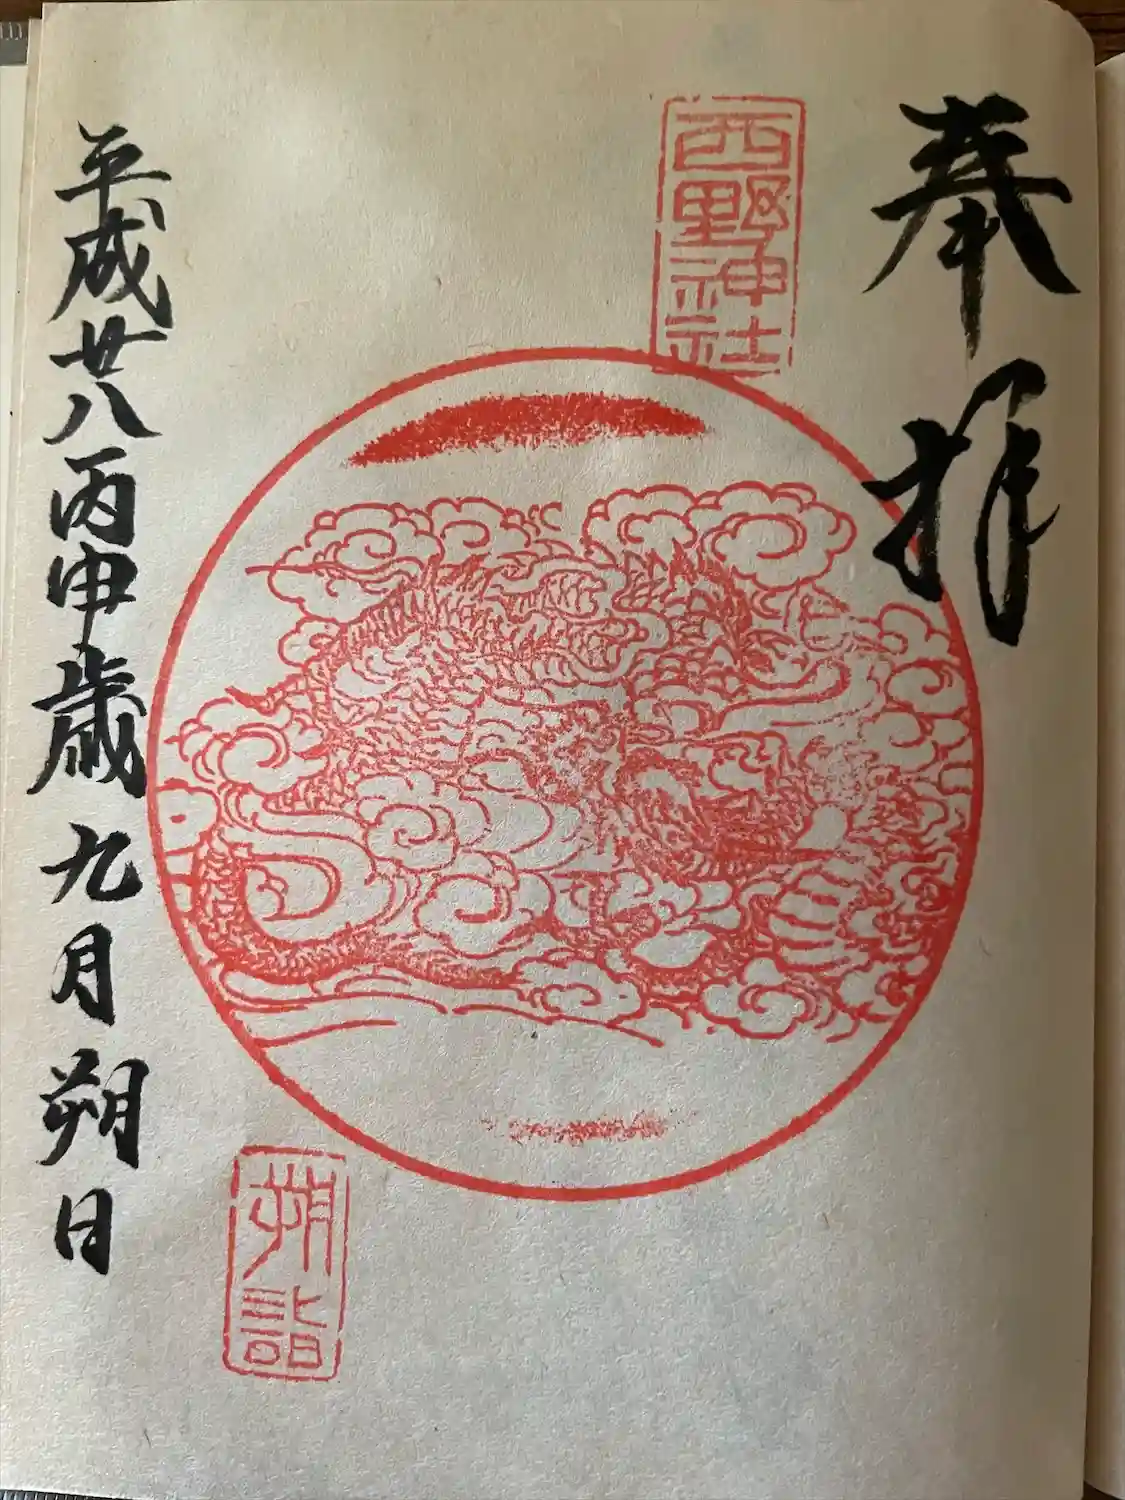 奉拝
西野神社
平成廿八丙申歳九月朔日
朔詣